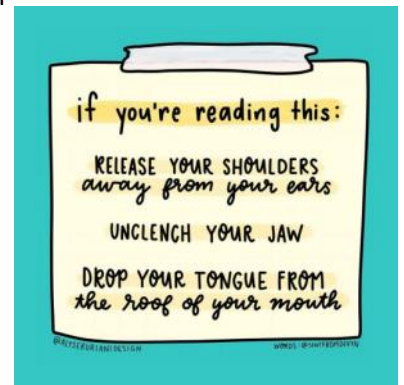 if you're reading this:
RELEASE YOUR SHOULDERS
away from your ears
UNCLENCH YOUR JAW
DROP YOUR TONGUE FROM
the roof of your mouth
@ALYSERURIANIDESIGN
WORDS: